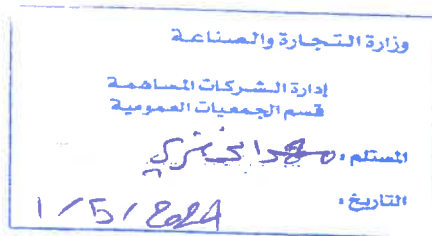 وزارة التجارة والصناعة
إدارة الشركات المساهمة
قسم الجمعيات العمومية
المستلم :
التاريخ : 1/5/2024